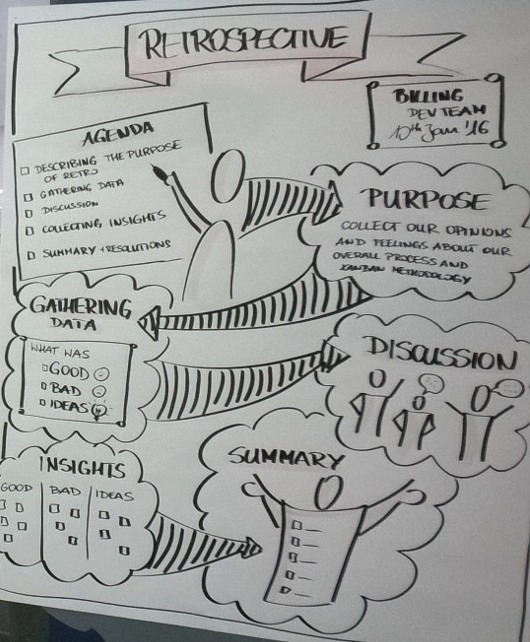 RETROSPECTIVE
BILLING
DEV TEAM
10th Jan '16
AGENDA
DESCRIBING THE PURPOSE
OF RETRO
GATHERING DATA
DISCUSSION
COLLECTING INSIGHTS
SUMMARY + RESOLUTIONS
PURPOSE
COLLECT OUR OPINIONS
AND FEELINGS ABOUT OUR
OVERALL PROCESS AND
KANBAN METHODOLOGY
GATHERING
DATA
WHAT WAS
GOOD
BAD
IDEAS
DISCUSSION
INSIGHTS
GOOD BAD IDEAS
SUMMARY